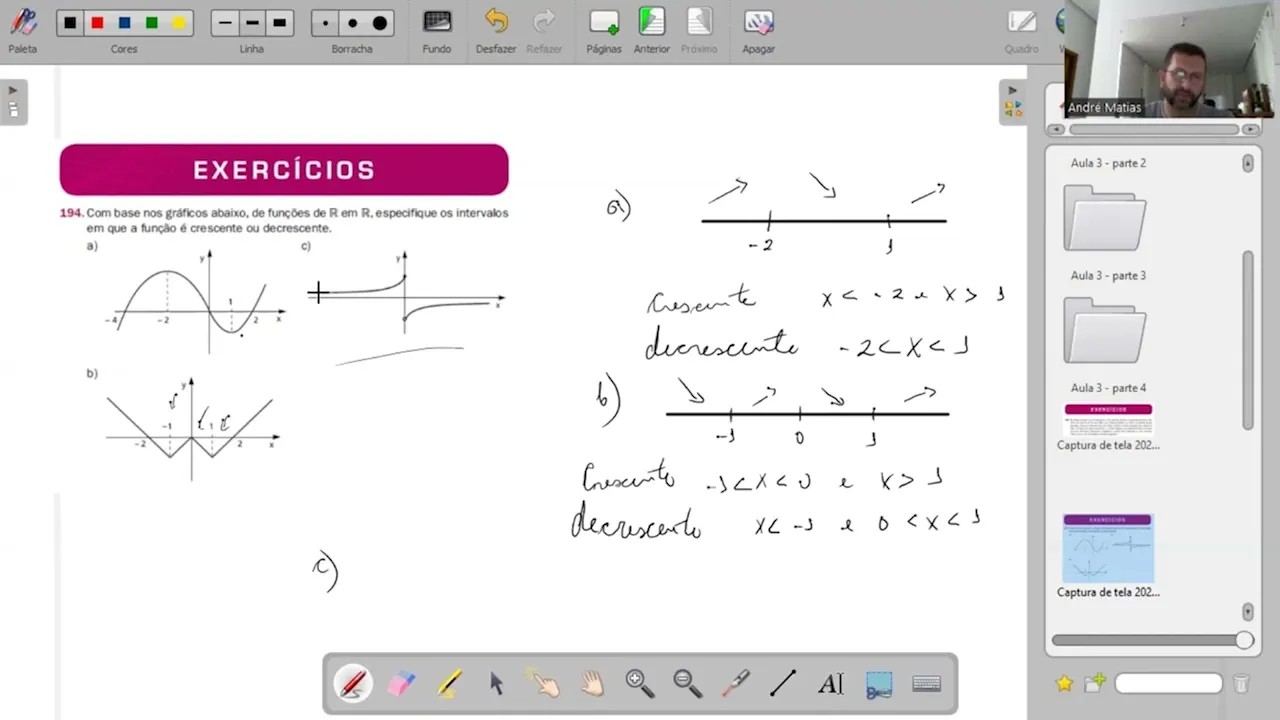 Paleta
Cores
Linha
Borracha
Fundo
Desfazer
Refazer
Páginas
Anterior
Próximo
Apagar
Quadro
André Matias
EXERCÍCIOS
194. Com base nos gráficos abaixo, de funções de ℝ em ℝ, especifique os intervalos
em que a função é crescente ou decrescente.
a)
y
-4
-2
1
2
x
c)
y
x
b)
y
-2
-1
1
2
x
a)
-2
1
Crescente x < -2 e x > 1
decrescente -2 < x < 1
b)
-1 0 1
Crescente -1 < x < 0 e x > 1
decrescente x < -1 e 0 < x < 1
c)
Aula 3 - parte 2
Aula 3 - parte 3
Aula 3 - parte 4
EXERCÍCIOS
Captura de tela 202...
EXERCÍCIOS
Captura de tela 202...